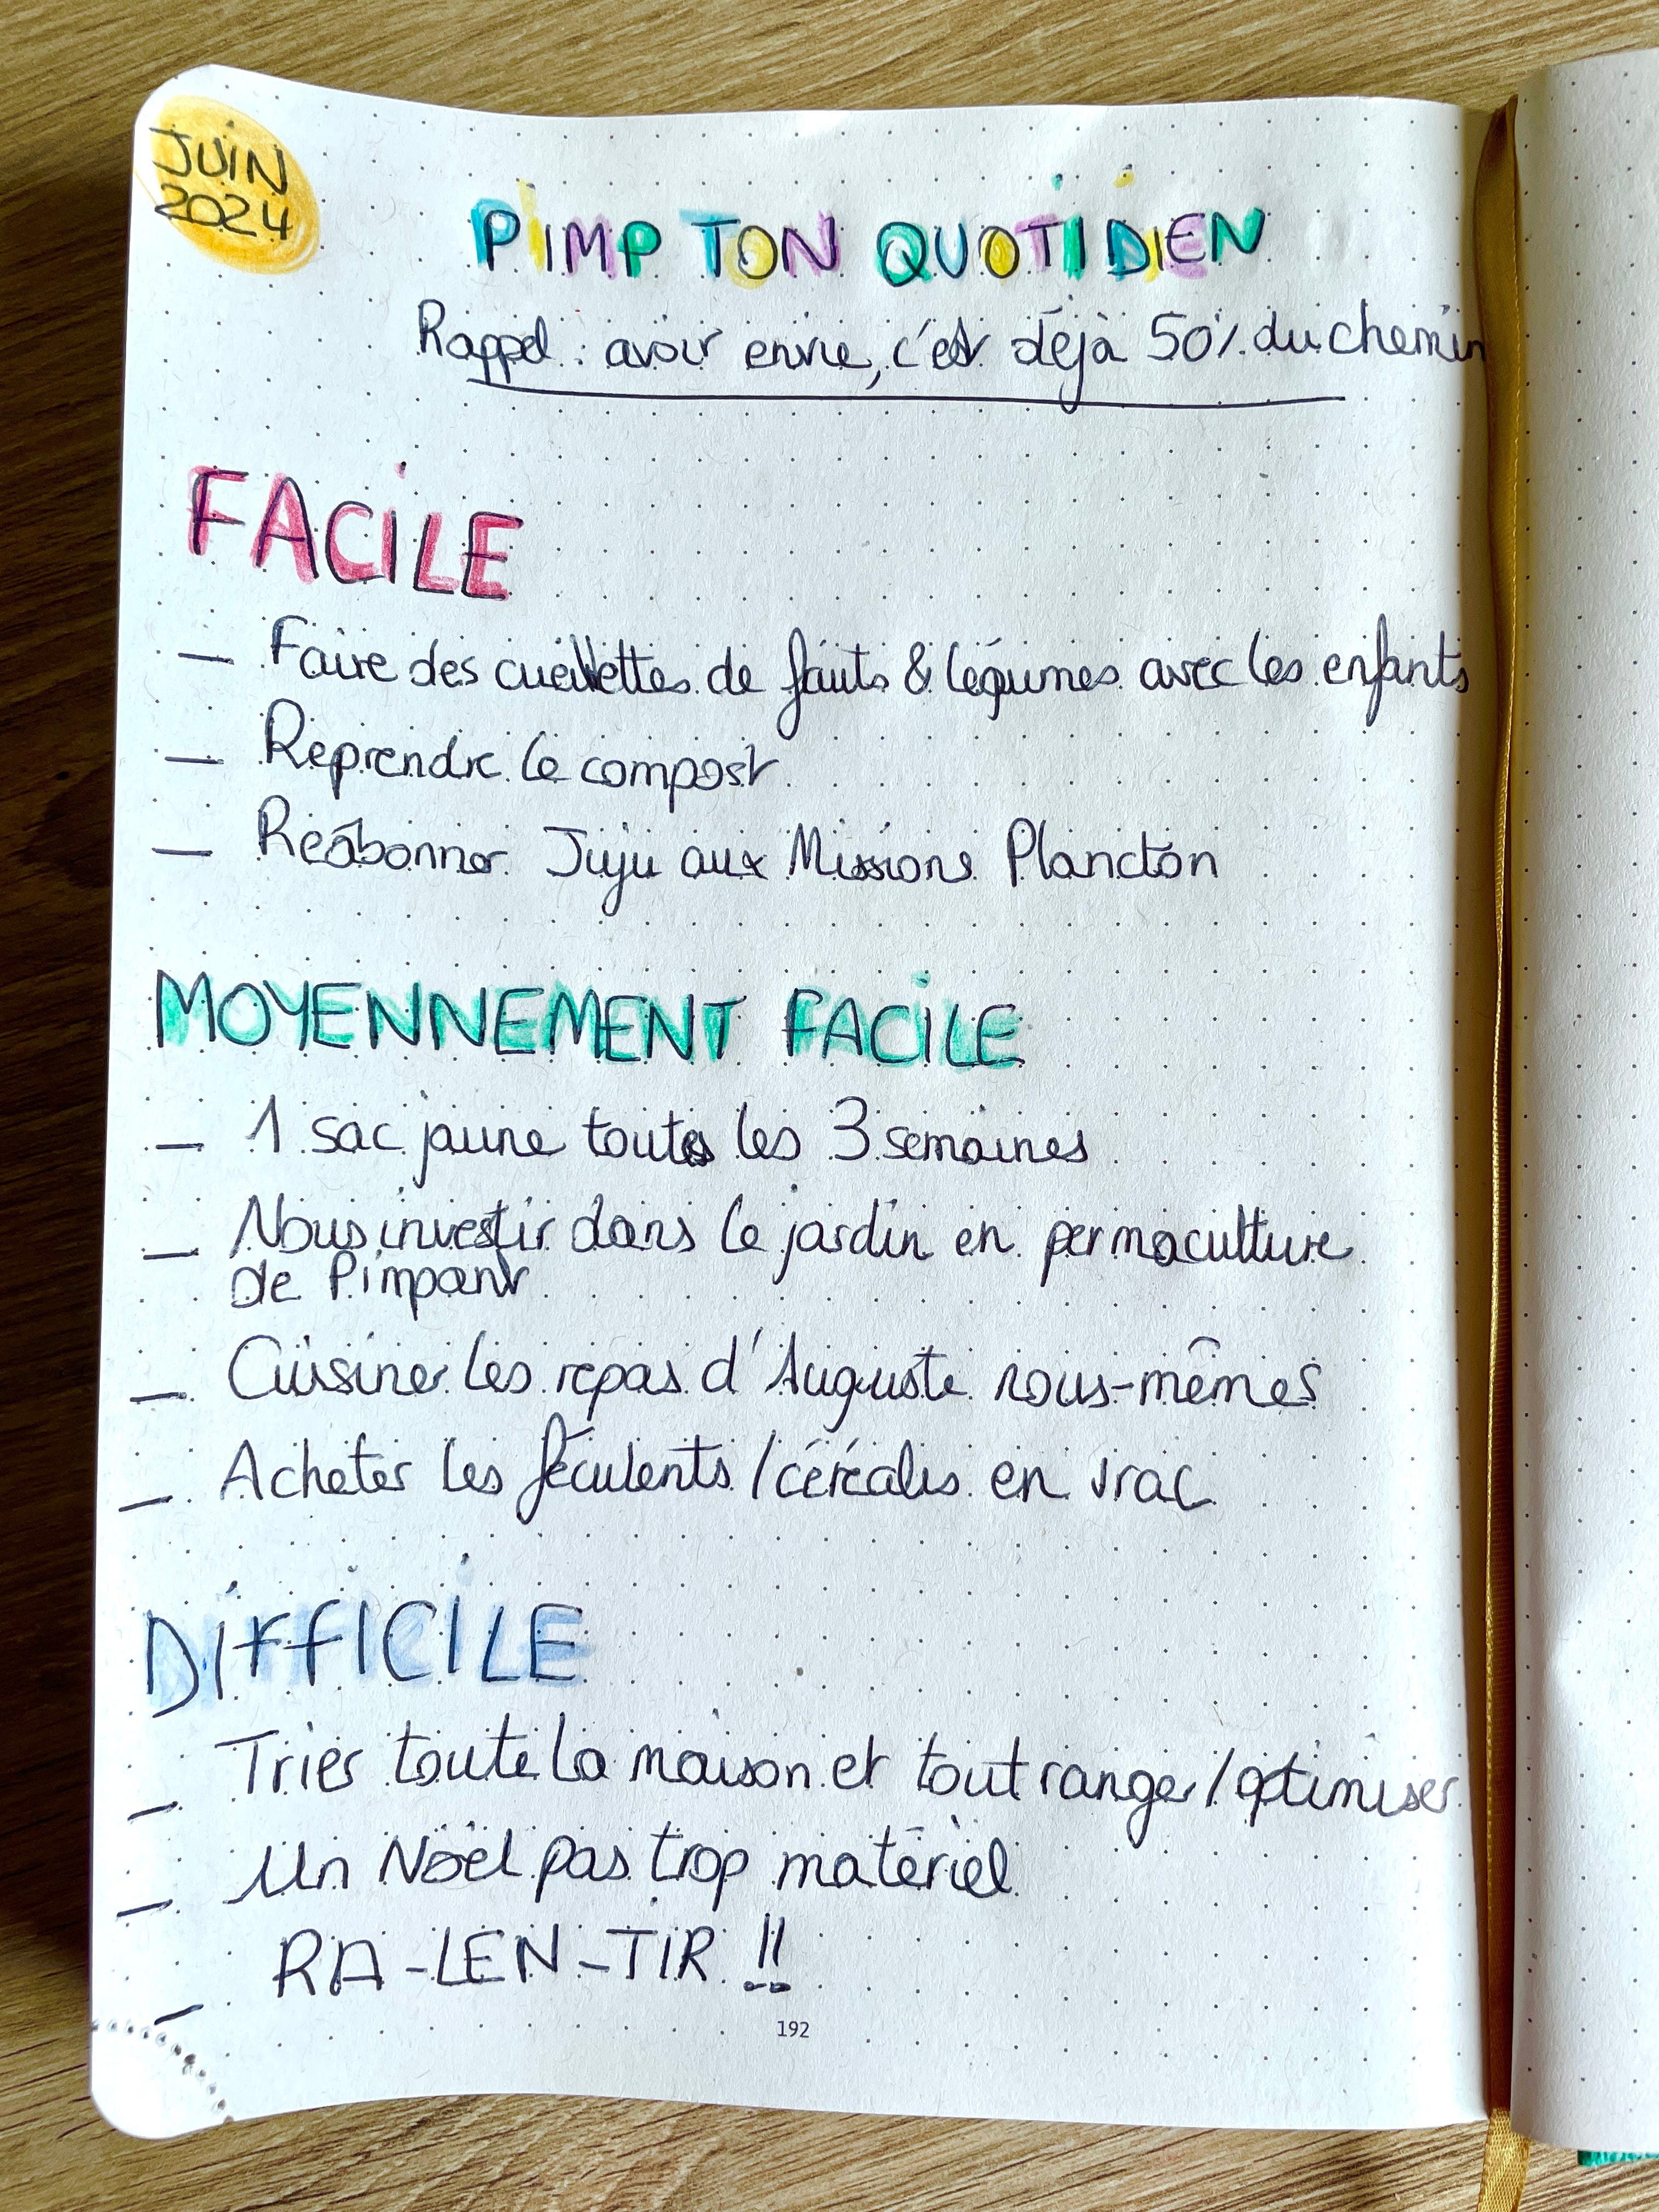 JUIN
2024
PIMP TON QUOTIDIEN
Rappel : avoir envie, c'est déjà 50% du chemin
FACILE
— Faire des cueillettes de fruits & légumes avec les enfants
— Reprendre le compost
— Réabonner Juju aux Missions Plancton
MOYENNEMENT FACILE
— 1 sac jaune toutes les 3 semaines
— Nous investir dans le jardin en permaculture
de Pimpant
— Cuisiner les repas d'Auguste nous-mêmes
— Acheter les féculents / céréales en vrac
DIFFICILE
— Trier toute la maison et tout ranger / optimiser
— Un Noël pas trop matériel
— RA-LEN-TIR !!
192